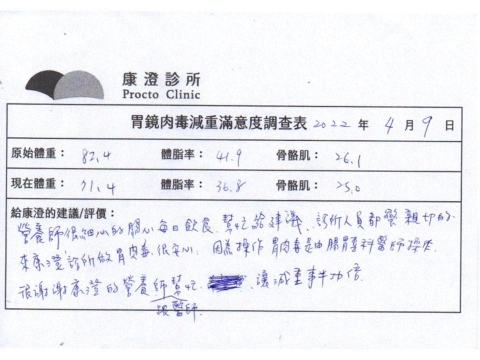 康澄診所
Procto Clinic
胃鏡肉毒減重滿意度調查表 2022 年 4 月 9 日
原始體重： 82.4 體脂率： 41.9 骨骼肌： 26.1
現在體重： 71.4 體脂率： 36.8 骨骼肌： 25.0
給康澄的建議/評價：
營養師很細心的關心每日飲食、幫忙給建議、診所人員都蠻親切的
來康澄診所做胃肉毒、很安心、因為操作胃肉毒是由腸胃專科醫師操作
很謝謝康澄的營養師幫忙、讓減重事半功倍
跟醫師